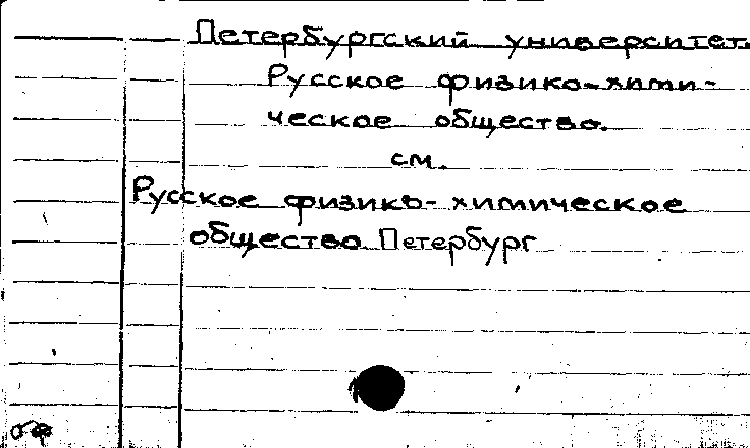 Петербургский университет.
Русское физико-хими-
ческое общество.
см.
Русское физико-химическое
общество Петербург